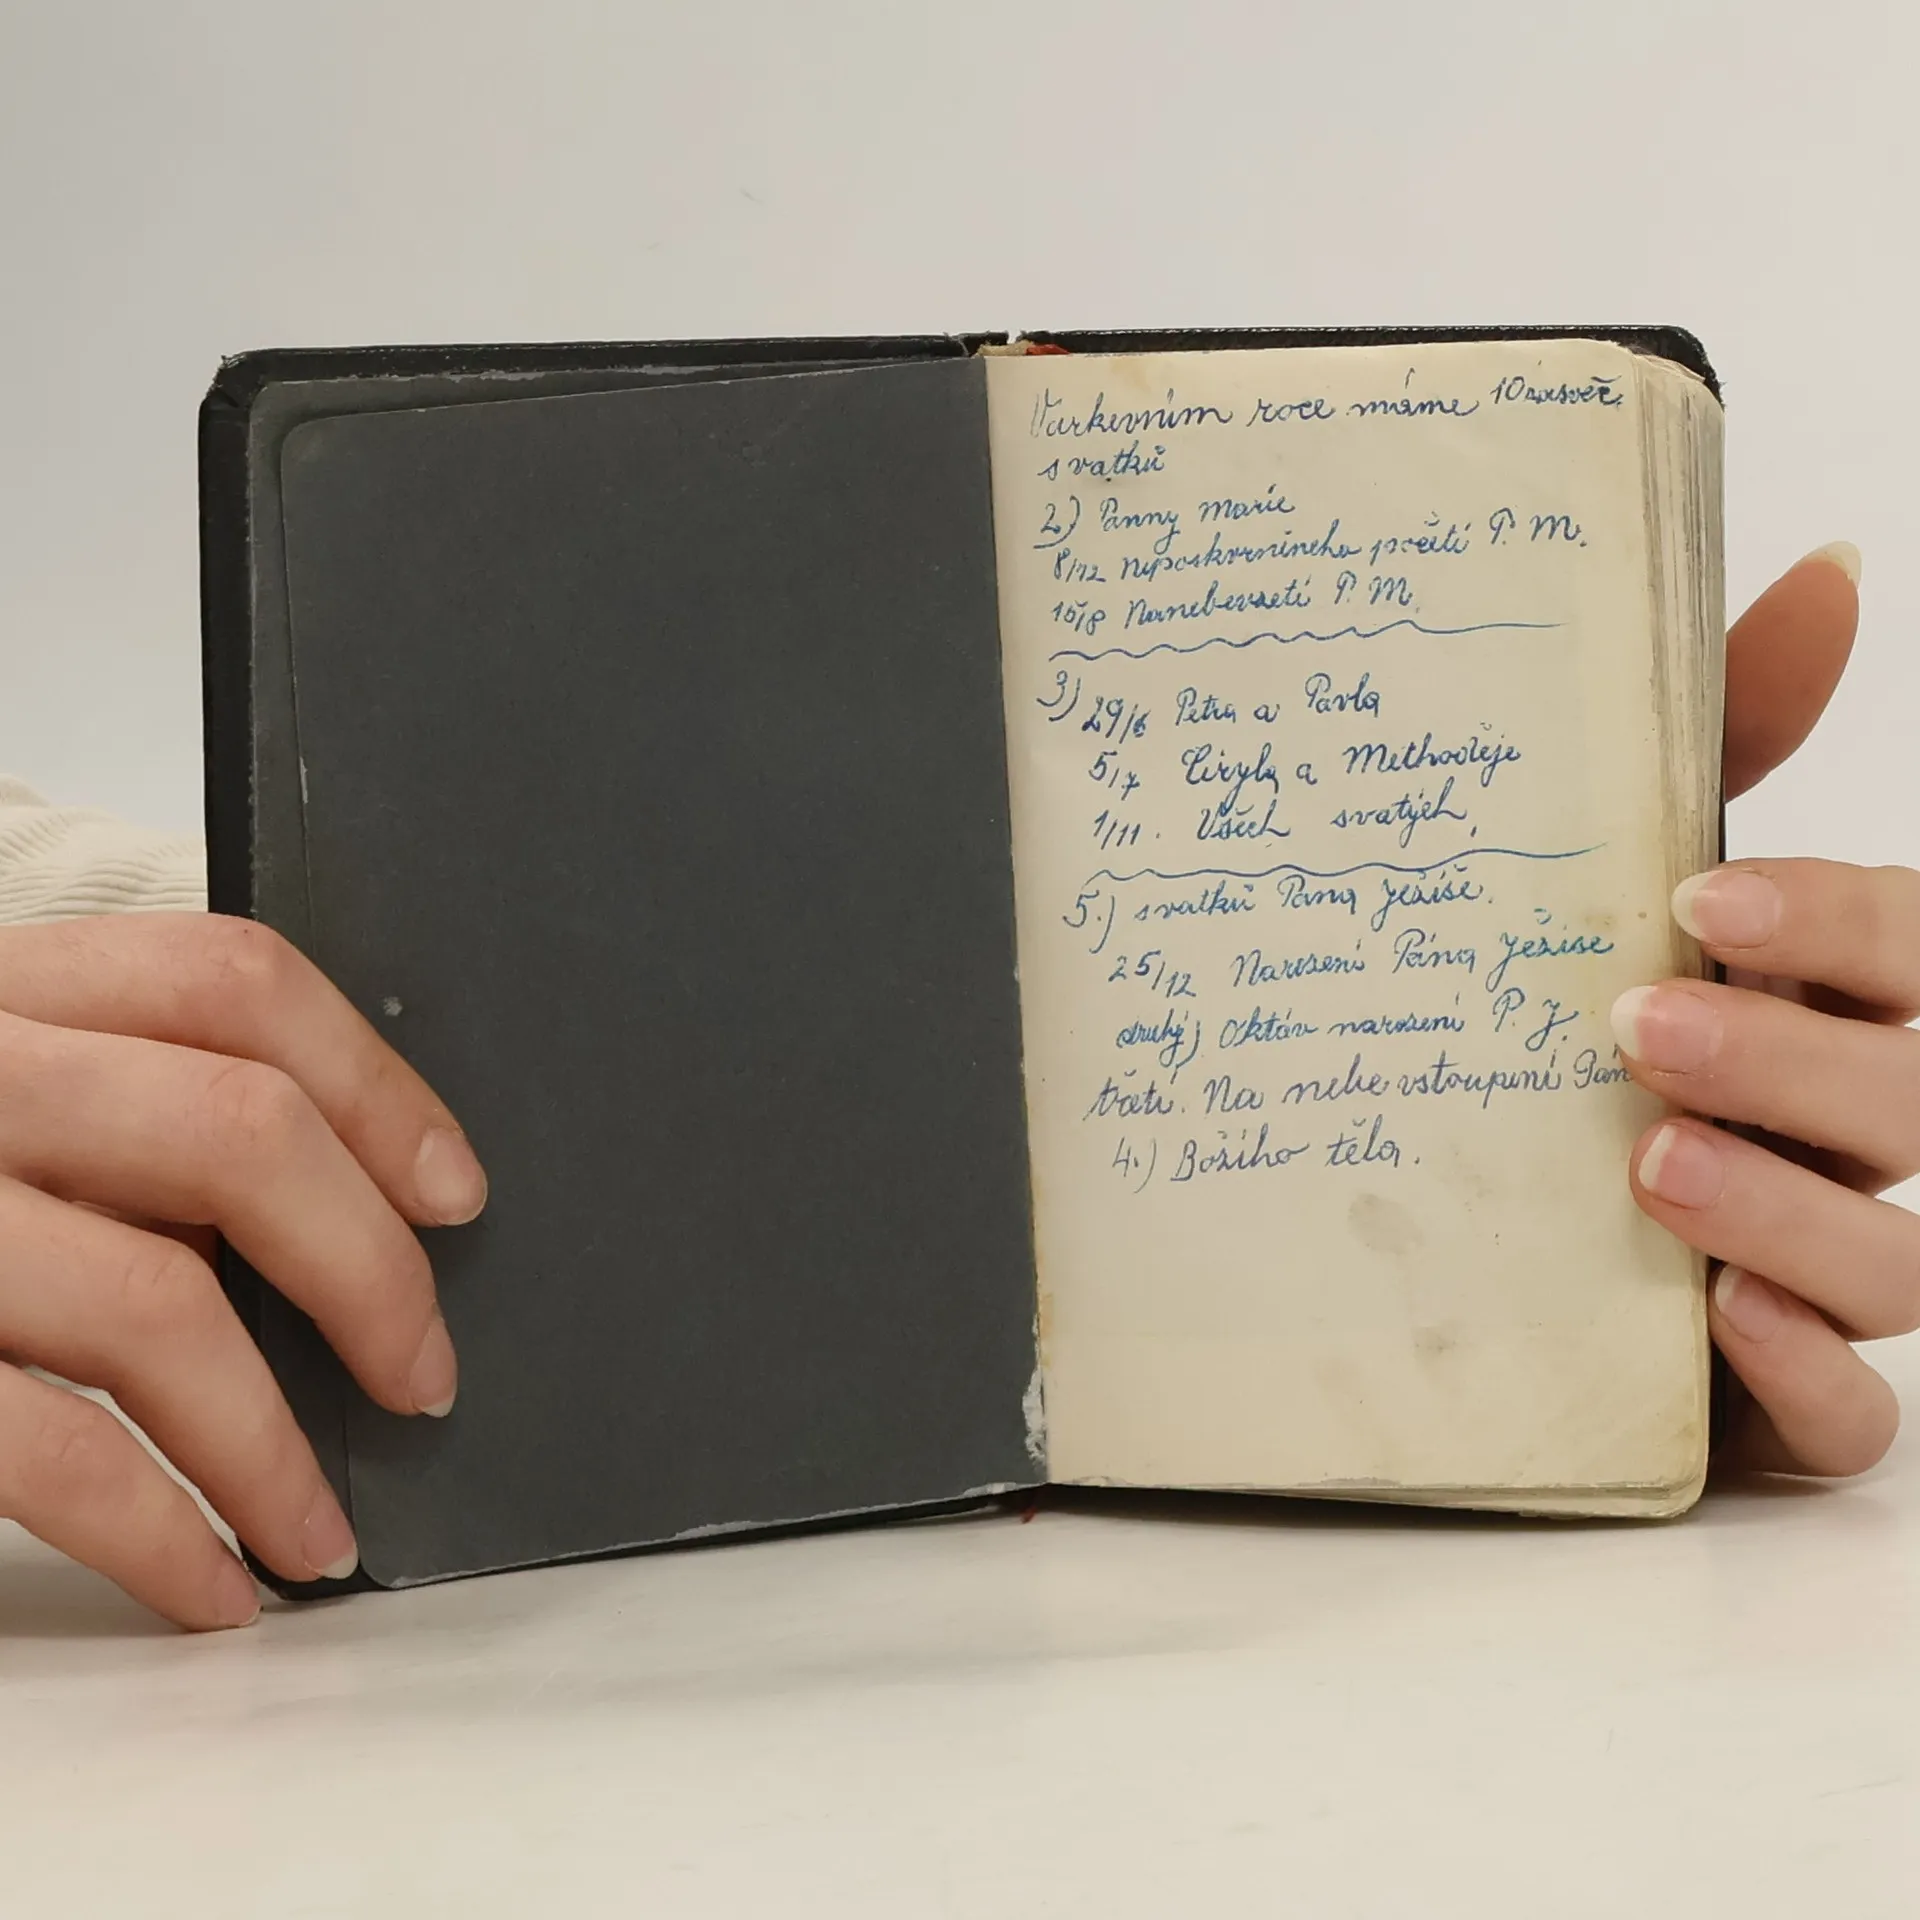 Varkevním roce máme 10 zasvěč.
svatků
2) Panny Marie
8/12 Neposkvrněneho početí P. M.
15/8 Nanebevzetí P. M.
3) 29/6 Petra a Pavla
5/7 Ciryla a Methoděje
1/11. Všech svatých,
5.) svatků Pana Ježíše.
25/12 Narození Pána Ježíse
druhý) Oktáv narození P. J.
třetí. Na nebe vstoupení Pán
4.) Božího těla.